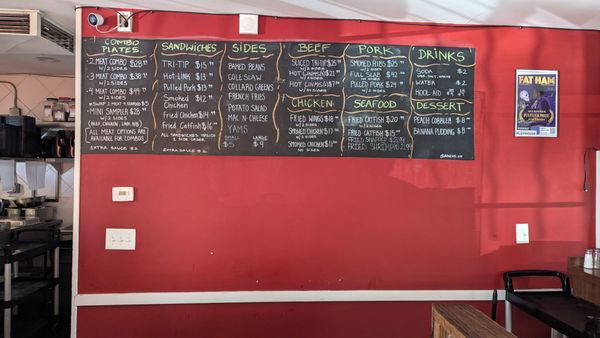 COMBO PLATES
-2 MEAT COMBO $28⁹⁹
W/2 SIDES
-3 MEAT COMBO $38⁹⁹
W/2 SIDES
-4 MEAT COMBO $49⁹⁹
-MINI SAMPLER $28
ALL MEAT OPTIONS ARE AVAILABLE FOR COMBOS
EXTRA SAUCE $2
SANDWICHES
TRI-TIP $15
Hot-Link $13
Pulled Pork $13
Smoked Chicken $12
Fried Chicken $14
Fried Catfish $16
EXTRA SAUCE $2
SIDES
BAKED BEANS
COLE SLAW
COLLARD GREENS
FRENCH FRIES
POTATO SALAD
MAC N CHEESE
YAMS
SMALL LARGE
$5 $9
BEEF
SLICED TRI TIP
W/2 SIDES
HOT LINKS
W/2 SIDES
HOT LINKS
CHICKEN
FRIED WINGS $18
W/2 SIDES
SMOKED CHICKEN $17
W/2 SIDES
SMOKED CHICKEN $11
NO SIDES
PORK
SMOKED RIBS
W/2 SIDES
FULL SLAB
PULLED PORK
SEAFOOD
FRIED CATFISH $20
W/2 SIDES
FRIED CATFISH $15
DRINKS
SODA $2
WATER $2
KOOL-AID $4
DESSERT
PEACH COBBLER $8
BANANA PUDDING $8
FAT HAM
PULITZER PRIZE